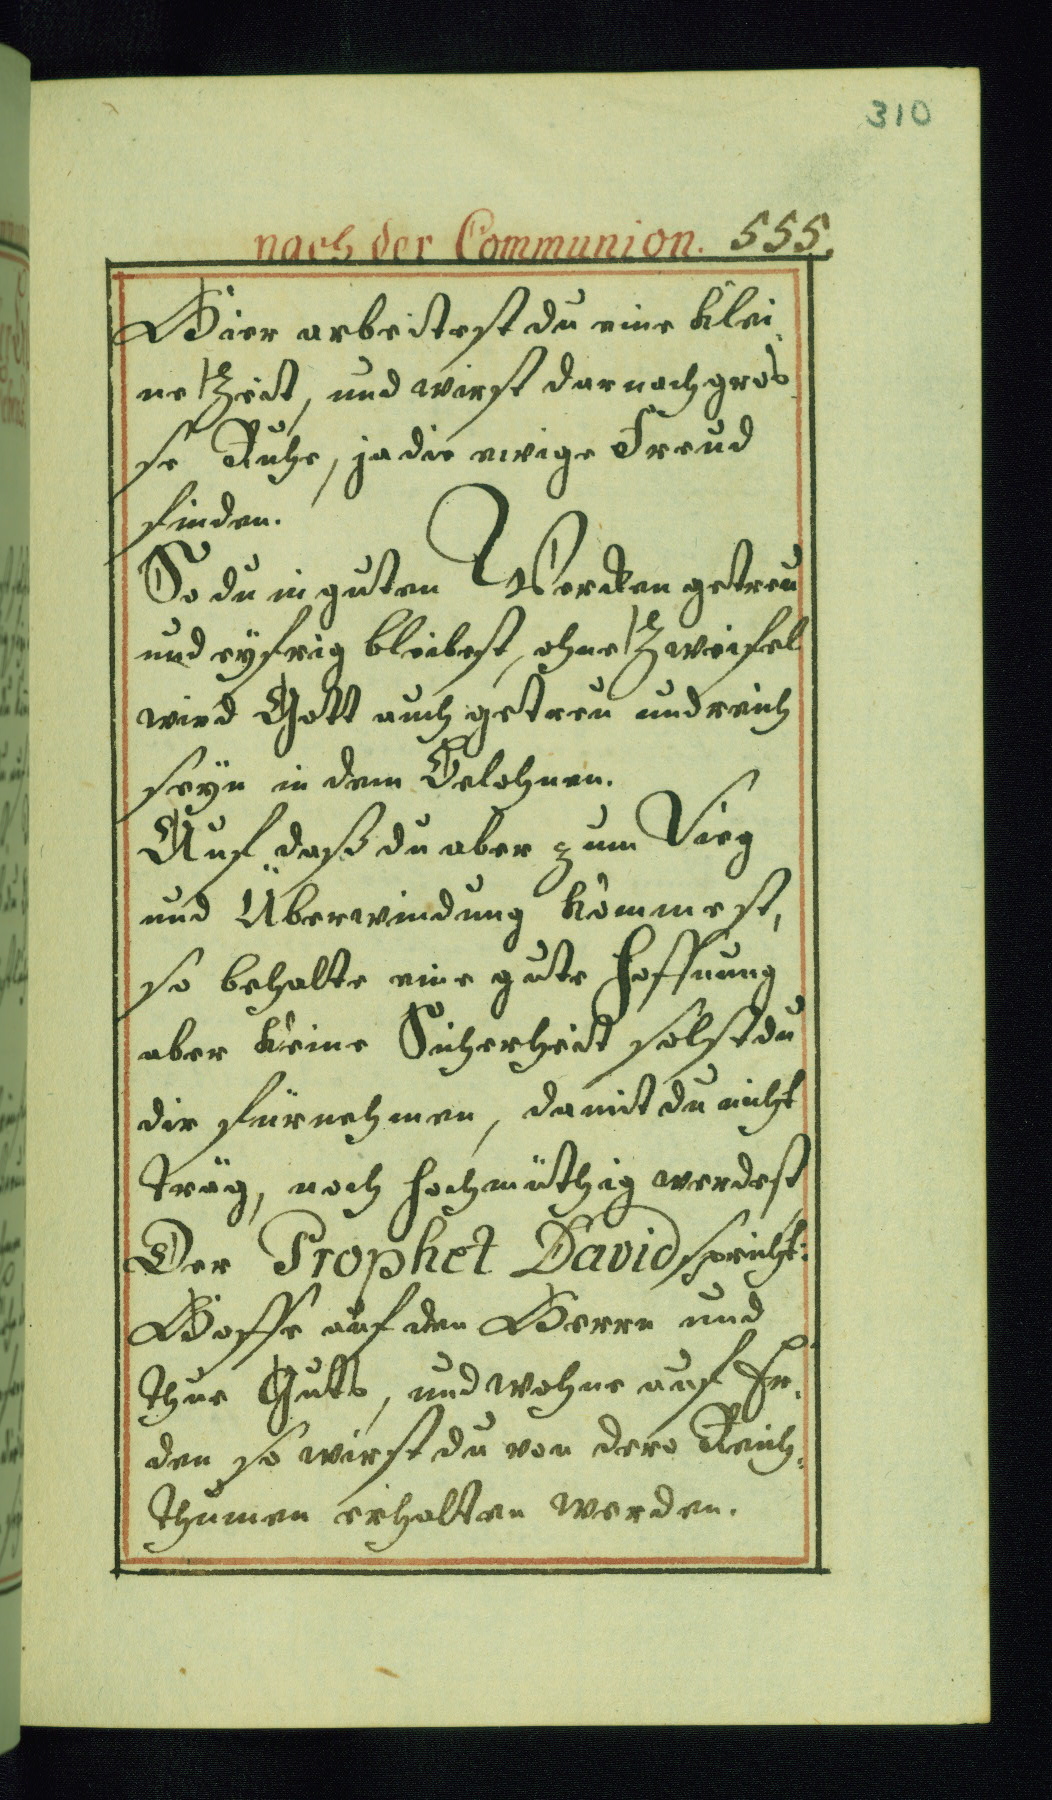 310
nach der Communion. 555.
Hier arbeitest du eine klei
ne Zeit, und wirst darnach gros
se Ruhe, ja die ewige Freud
finden.
So du in guten Wercken getreu
und eyfrig bleibest, ohne Zweifel
wird Gott auch getreu und reich
seyn in dem Belohnen.
Auf daß du aber zum Sieg
und Überwindung kommest,
so behalte eine gute Hoffnung
aber keine Sicherheit solst du
dir fürnehmen, damit du nicht
träg, noch hochmüthig werdest
Der Prophet David spricht:
Hoffe auf den Herrn und
thue Guts, und wohne auf Er-
den so wirst du von dero Reich-
thumen erhalten werden.